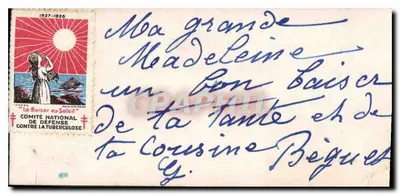 1937-1938
"Le Baiser au Soleil"
COMITÉ NATIONAL
DE DÉFENSE
CONTRE LA TUBERCULOSE
Ma grande
Madeleine
un bon baiser
de ta tante et de
ta cousine Béguet
G.